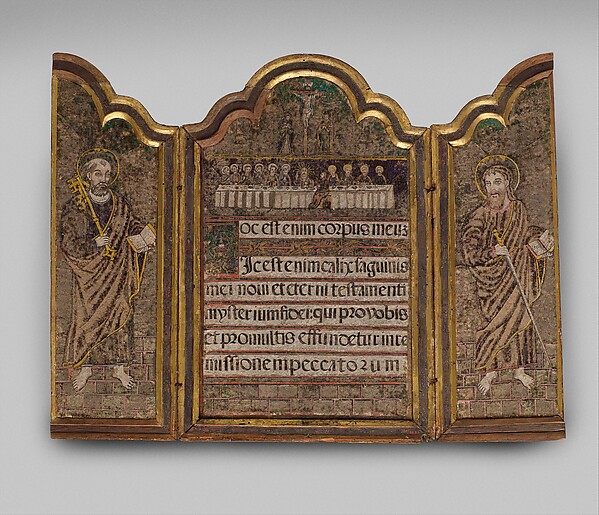 oc est enim corpus meuʒ
Ic est enim calix saguinis
mei novi et eterni testamenti
mysterium fidei: qui pro vobis
et pro multis effundetur in re
missionem peccatorum